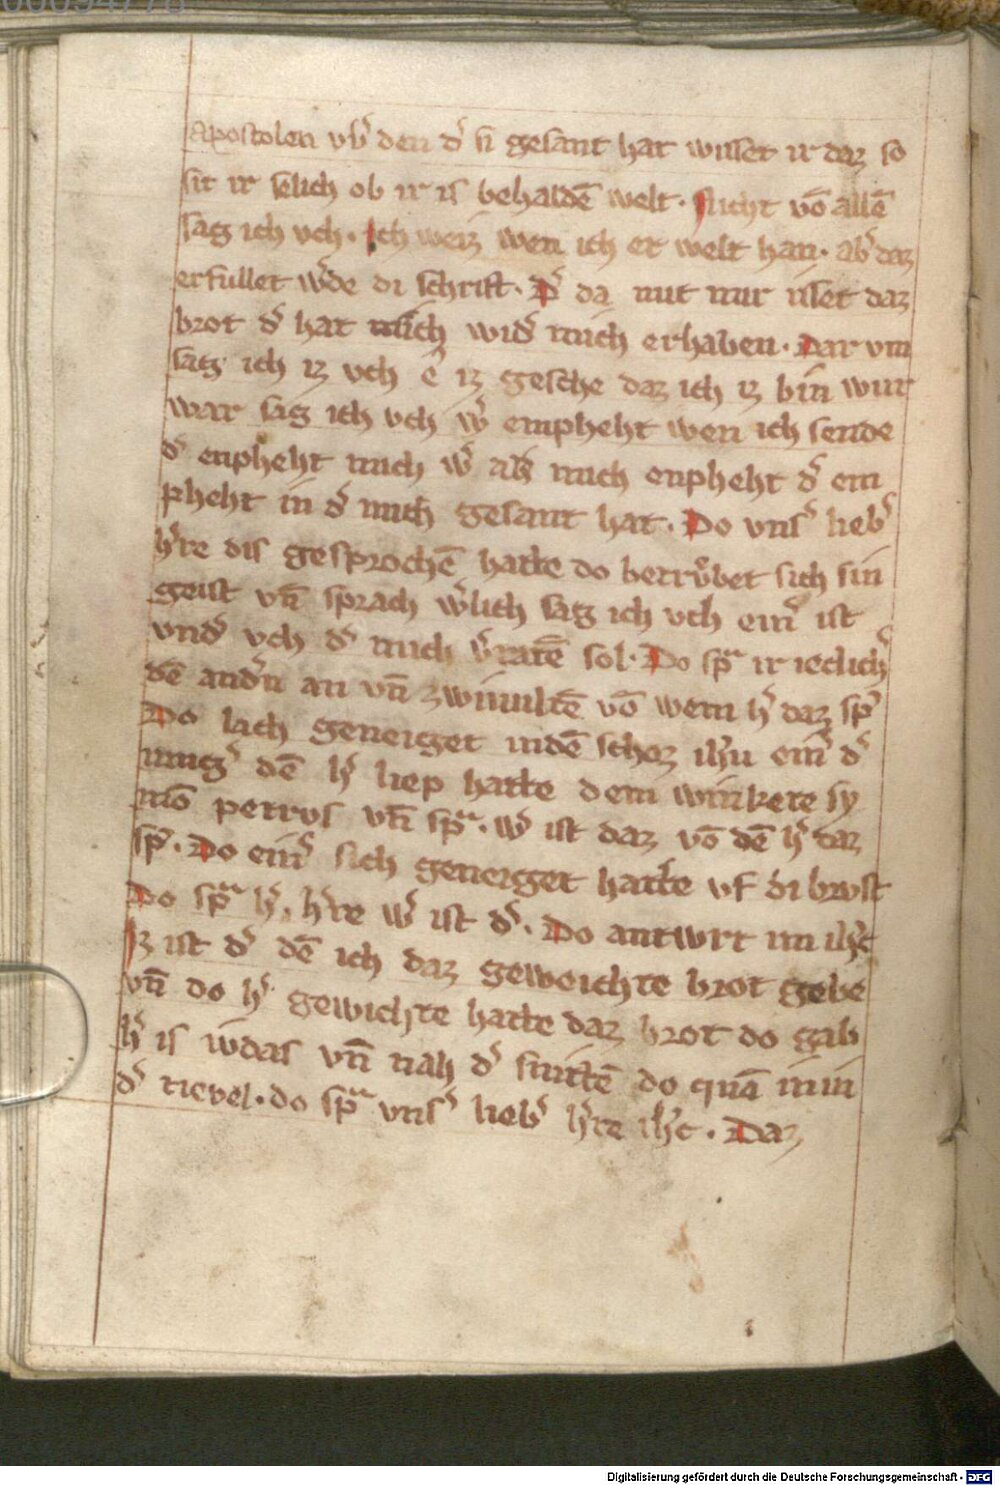 Apostolen vb̾ den d̾ si gesant hat wisset ir daz so
sit ir selich ob ir is behaldē welt. Nicht vō allē
sag ich vch. Ich weiz wen ich er welt han. ab̾ daz
erfullet w̾de di schrift. D̾ da mit mir isset daz
brot d̾ hat sich wid̾ mich erhaben. Dar vm
sag ich iz vch e iz gesche daz ich iz bin wur
war sag ich vch w̾ empheht wen ich sende
d̾ enpheht mich w̾ ab̾ mich enpheht d̾ em
pheht in d̾ mich gesant hat. Do vns̾ lieb̾
h̾re dis gesprochē hatte do betrůbet sich sin
geist vn̄ sprach w̾lich sag ich vch ein̾ ist
vnd̾ vch d̾ mich v̾ratē sol. Do spͣ ir ieclich̾
dē and̾n an vn̄ zwiuiltē vō wem h̾ daz sp̾
Do lach geneiget indē schoz ih̾u ein̾ d̾
iung̾ dē h̾ liep hatte dem winkete sy
mō petrvs vn̄ spͣ. w̾ ist daz vō dē h̾ daz
sp̾. Do ein̾ sich geneiget hatte vf di brvst
Do spͣ h̾, h̾re w̾ ist d̾. Do antwrt im ih̾c
Iz ist d̾ dē ich daz geweichte brot gebe
vn̄ do h̾ gewichte hatte daz brot do gab
h̾ is ivdas vn̄ nah d̾ snittē do quā in in
d̾ tievel. do spͣ vns̾ lieb̾ h̾re ih̾c. Daz
Digitalisierung gefördert durch die Deutsche Forschungsgemeinschaft - DFG